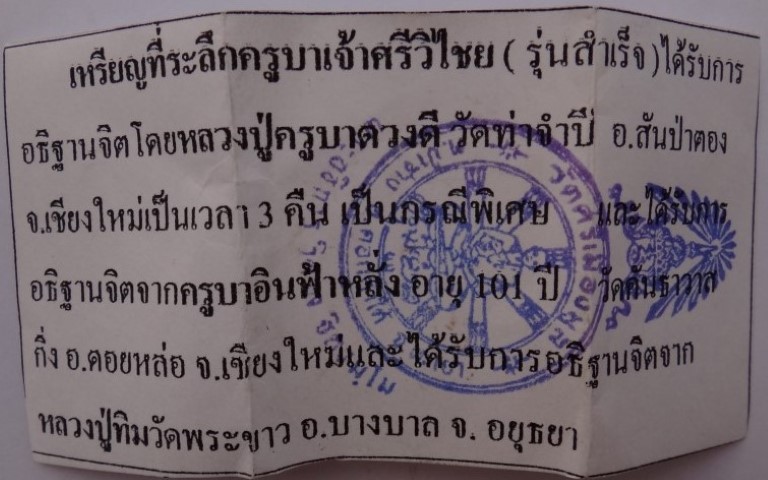 เหรียญที่ระลึกครูบาเจ้าศรีวิไชย ( รุ่นสำเร็จ ) ได้รับการ
อธิฐานจิตโดยหลวงปู่ครูบาดวงดี วัดท่าจำปี อ.สันป่าตอง
จ.เชียงใหม่เป็นเวลา 3 คืน เป็นกรณีพิเศษ และได้รับการ
อธิฐานจิตจากครูบาอินฟ้าหลั่ง อายุ 101 ปี วัดคันธาวาส
กิ่ง อ.ดอยหล่อ จ.เชียงใหม่และ ได้รับการอธิฐานจิตจาก
หลวงปู่ทิมวัดพระขาว อ.บางบาล จ. อยุธยา